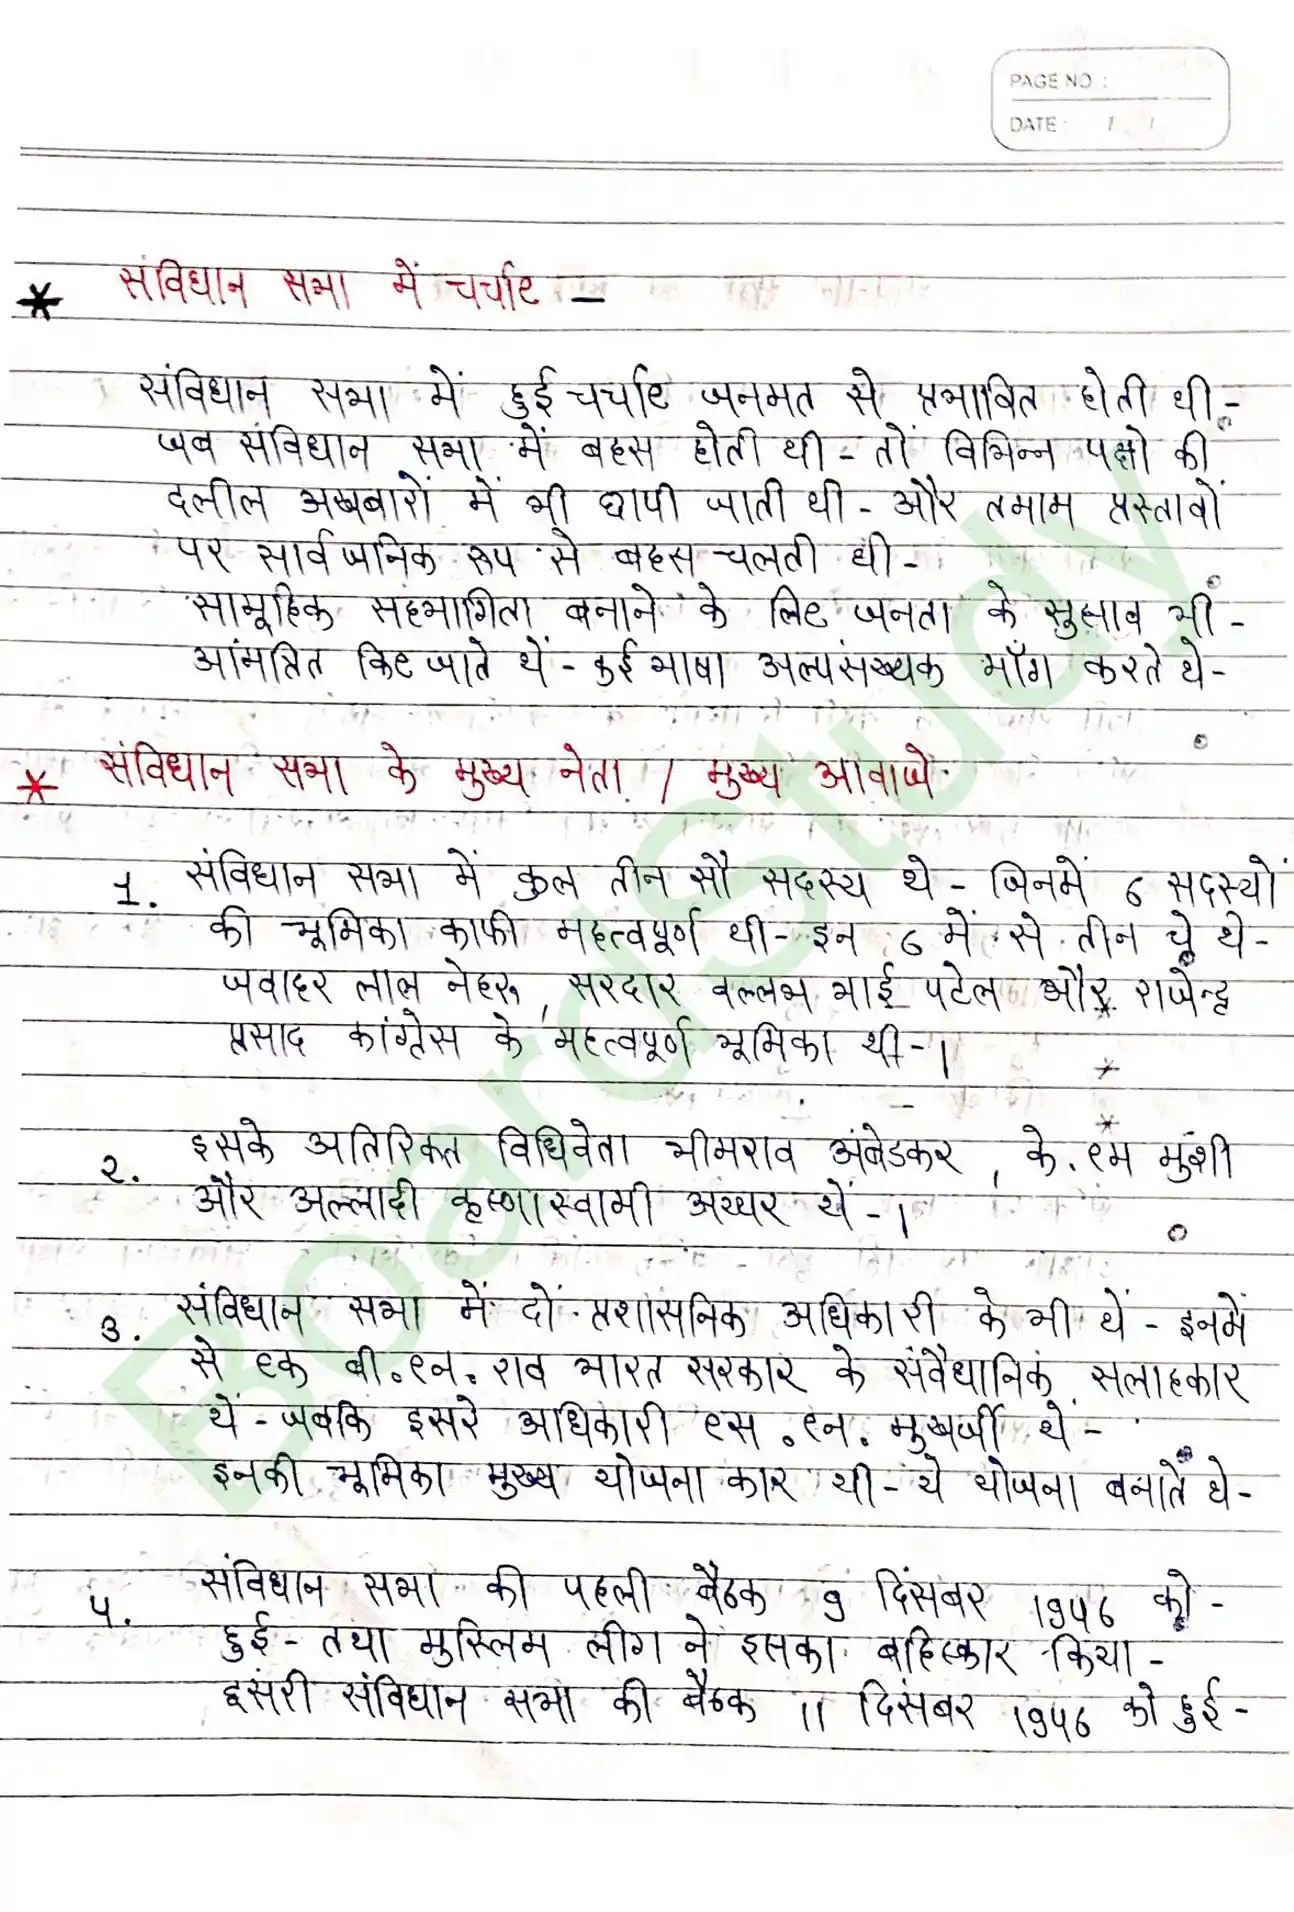 PAGE NO :
DATE : / /
* संविधान सभा में चर्चाए –
संविधान सभा में हुई चर्चाए जनमत से प्रभावित होती थी -
जब संविधान सभा में बहस होती थी - तों विभिन्न पक्षो की
दलील अखबारों में भी छापी जाती थी - और तमाम प्रस्तावों
पर सार्वजनिक रूप से बहस चलती थी -
सामूहिक सहभागिता बनाने के लिए जनता के सुझाव भी -
आंमत्रित किए जाते थें - कुई भाषा अल्पसंख्यक माँग करते थे -
* संविधान सभा के मुख्य नेता / मुख्य आवाजे
1. संविधान सभा में कुल तीन सौ सदस्य थे - जिनमें 6 सदस्यों
की भूमिका काफी महत्वपूर्ण थी - इन 6 में से तीन ये थे -
जवाहर लाल नेहरू , सरदार वल्लभ भाई पटेल और राजेन्द्र
प्रसाद कांग्रेस के महत्वपूर्ण भूमिका थी - ।
2. इसके अतिरिक्त विधिवेता भीमराव अंबेडकर , के . एम मुंशी
और अल्लादी कृष्णास्वामी अय्यर थें - ।
3. संविधान सभा में दों प्रशासनिक अधिकारी के भी थें - इनमें
से एक बी . एन . राव भारत सरकार के संवैधानिक सलाहकार
थें - जबकि दुसरे अधिकारी एस . एन . मुखर्जी थे -
इनकी भूमिका मुख्य योजना कार थी - ये योजना बनातें थे -
4. संविधान सभा की पहली बैठक 9 दिंसबर 1946 को -
हुई - तथा मुस्लिम लीग ने इसका बहिस्कार किया -
दुसरी संविधान सभा की बैठक 11 दिसंबर 1946 को हुई -
BoardStudy